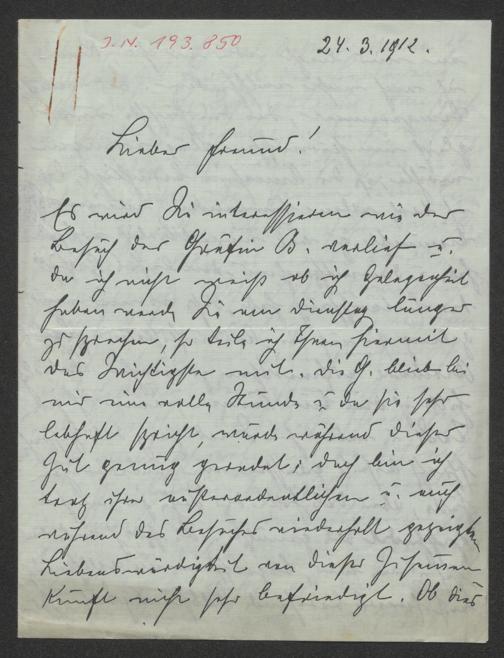 J.N. 193.850
24. 3. 1912.
Lieber Freund!
Es wird Sie interessieren wie der
Besuch der Gräfin B. verlief u.
da ich nicht weiß ob ich Gelegenheit
haben werde Sie am Dienstag länger
zu sprechen, so teile ich Ihnen hiermit
das Wichtigste mit. Die G. blieb bei
mir eine volle Stunde u. da sie sehr
lebhaft spricht, wurde während dieser
Zeit genug geredet; doch bin ich
trotz ihrer außerordentlichen u. auch
während des Besuches wiederholt gezeigten
Liebenswürdigkeit von dieser Zusammen
kunft nicht sehr befriedigt. Ob dies